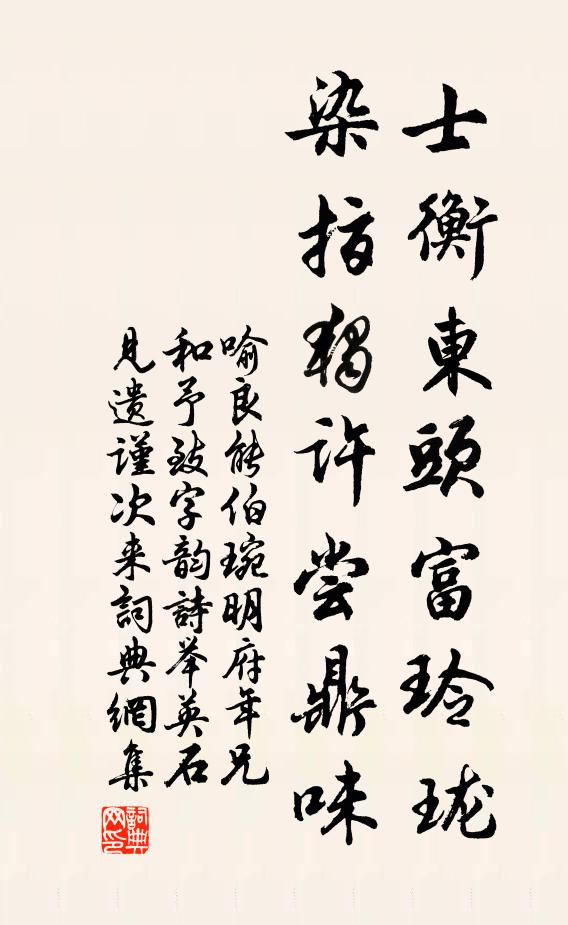 士衡東頭富玲珑
染指独许尝鼎味
喻良能伯琬明府年兄
和予致字韵詩举英石
見遗謹次来詞典網集
詞典网印